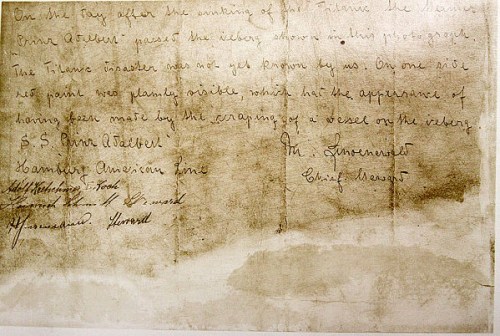 On the day after the sinking of the Titanic the steamer
Prinz Adelbert passed the iceberg shown in this photograph.
The Titanic disaster was not yet known by us. On one side
red paint was plainly visible, which had the appearance of
having been made by the scraping of a vessel on the iceberg.
S. S. "Prinz Adelbert" M. Linoenewald
Hamburg American Line Chief Steward
Koch
Steward
Steward